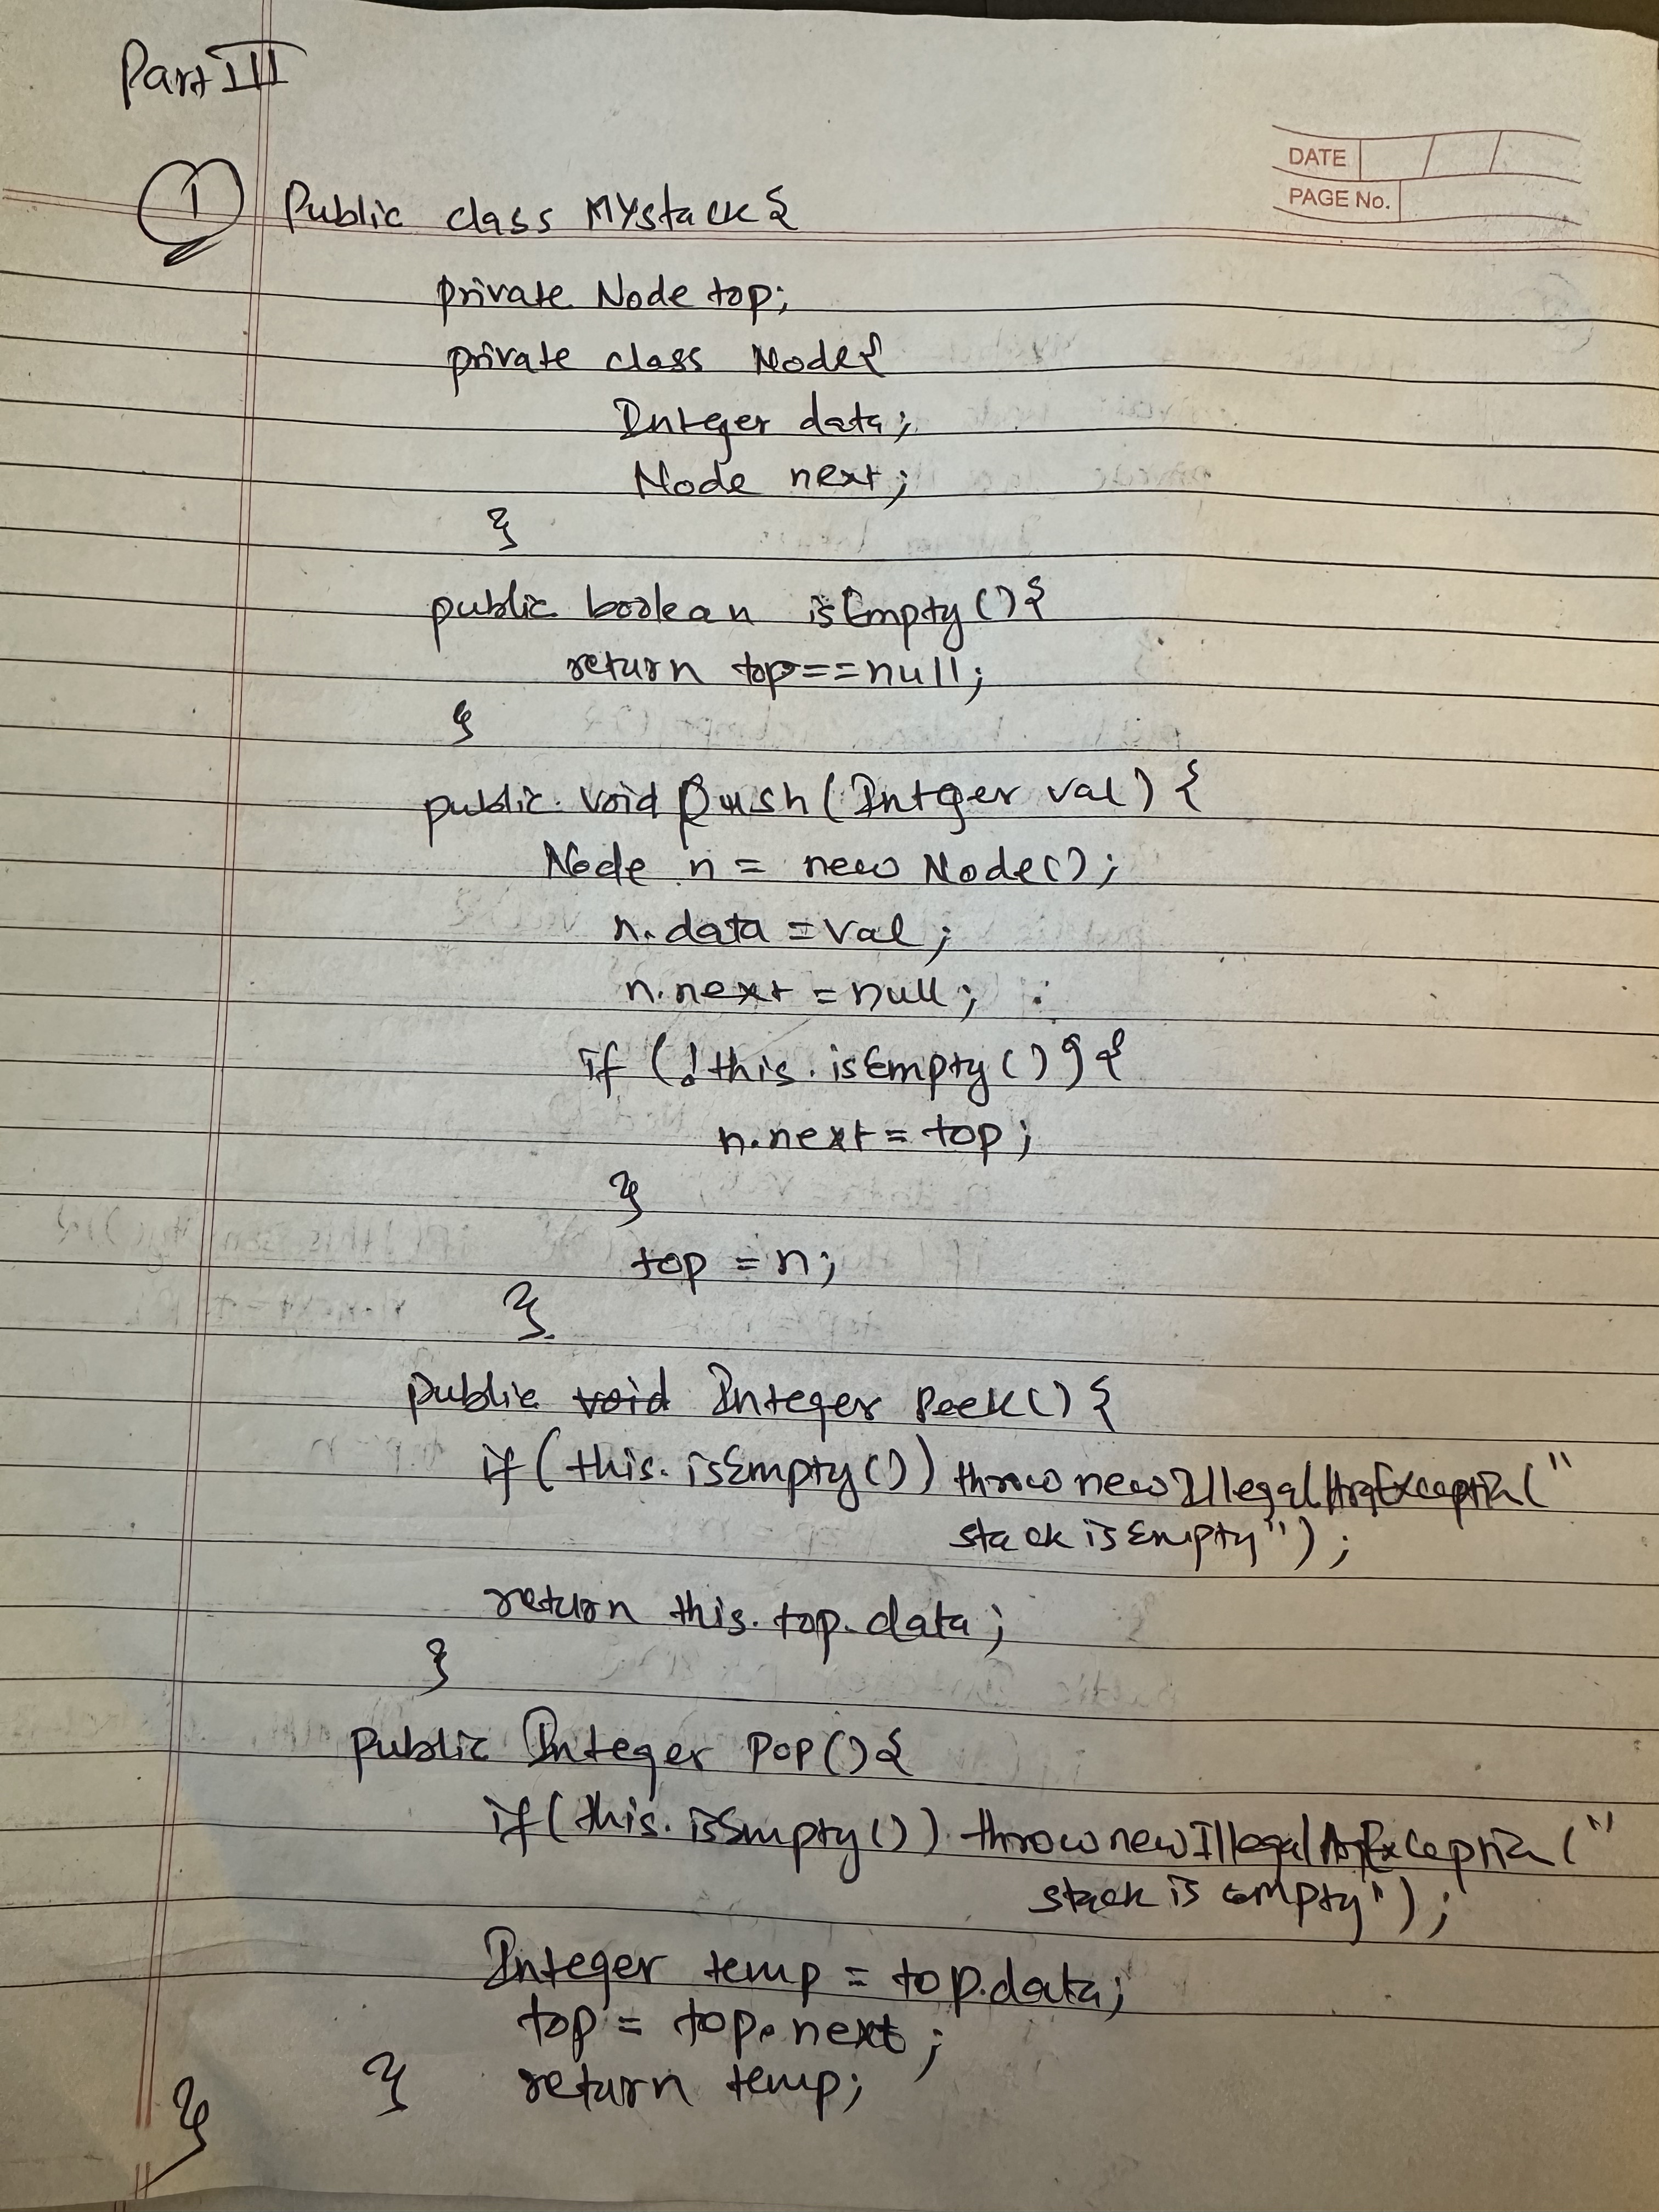 Part III
DATE / /
PAGE No.
① Public class MYstack{
private Node top;
private class Node{
Integer data;
Node next;
}
public boolean isEmpty(){
return top==null;
}
public void push(Integer val){
Node n = new Node();
n.data = val;
n.next = null;
if (!this.isEmpty()){
n.next = top;
}
top = n;
}
public void Integer peek(){
if(this.isEmpty()) throw new IllegalArgException("
stack is Empty");
return this.top.data;
}
public Integer pop(){
if(this.isEmpty()) throw new IllegalArgException("
stack is empty");
Integer temp = top.data;
top = top.next;
} return temp;
}